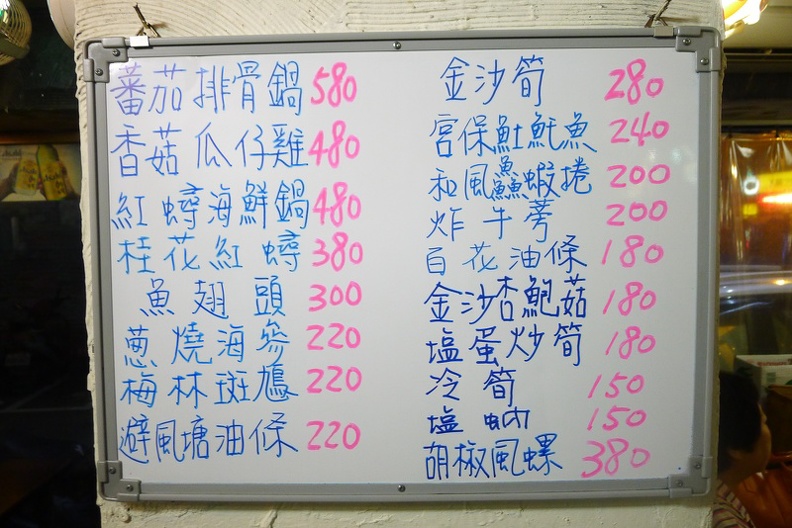 蕃茄排骨鍋 580
香菇瓜仔雞 480
紅蟳海鮮鍋 480
桂花紅蟳 380
魚翅頭 300
蔥燒海參 220
梅林斑鳩 220
避風塘油條 220
金沙筍 280
宮保魟魠魚 240
和風鱻蝦捲 200
炸牛蒡 200
百花油條 180
金沙杏鮑菇 180
塩蛋炒筍 180
冷筍 150
塩蚋 150
胡椒風螺 380